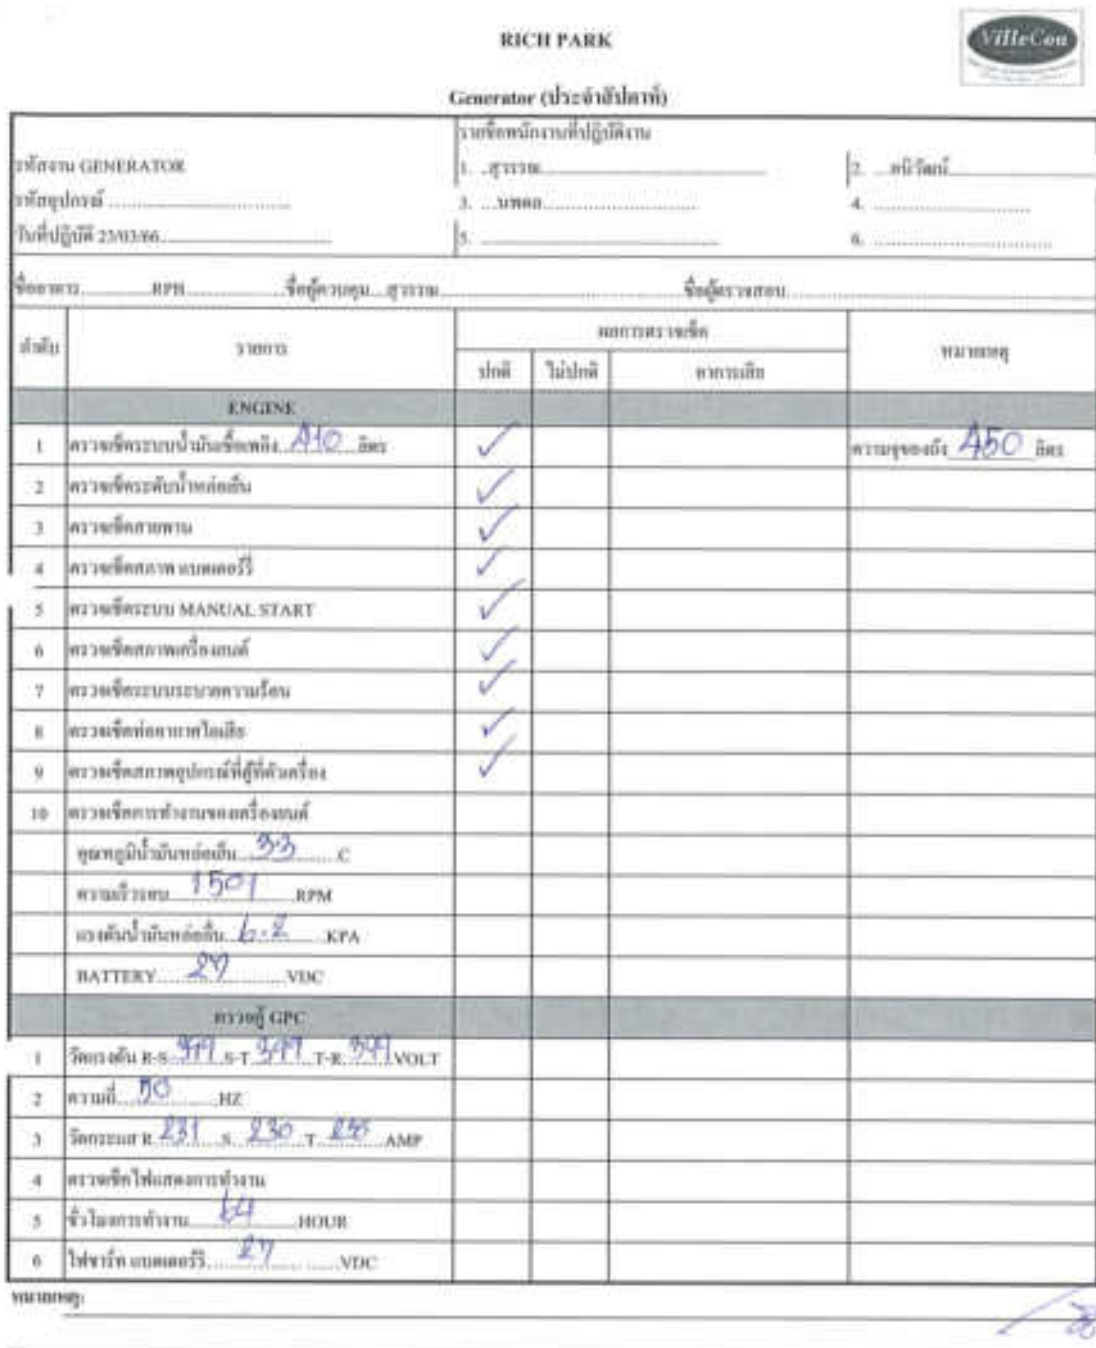 RICH PARK
VilleCon
Generator (ประจำสัปดาห์)
รายชื่อพนักงานที่ปฏิบัติงาน
รหัสงาน GENERATOR
1. สุวรรณ 2.
รหัสอุปกรณ์
3. นพดล 4.
วันที่ปฏิบัติ 23/03/66
5. 6.
ชื่ออาคาร RPH ชื่อผู้ควบคุม สุวรรณ ชื่อผู้ตรวจสอบ
ลำดับ รายการ ผลการตรวจเช็ค หมายเหตุ
ปกติ ไม่ปกติ อาการเสีย
ENGINE
1 ตรวจเช็คระบบน้ำมันเชื้อเพลิง 410 ลิตร ความจุของถัง 450 ลิตร
2 ตรวจเช็คระดับน้ำหล่อเย็น
3 ตรวจเช็คสายพาน
4 ตรวจเช็คสภาพ แบตเตอร์รี่
5 ตรวจเช็คระบบ MANUAL START
6 ตรวจเช็คสภาพเครื่องยนต์
7 ตรวจเช็คระบบระบายความร้อน
8 ตรวจเช็คท่ออากาศไอเสีย
9 ตรวจเช็คสภาพอุปกรณ์ที่ตู้ที่ตัวเครื่อง
10 ตรวจเช็คการทำงานของเครื่องยนต์
อุณหภูมิน้ำมันหล่อเย็น 33 C
ความเร็วรอบ 1501 RPM
แรงดันน้ำมันหล่อลื่น 6.2 KPA
BATTERY 27 VDC
ตรวจตู้ GPC
1 วัดแรงดัน R-S 399 S-T 399 T-R 399 VOLT
2 ความถี่ 50 HZ
3 วัดกระแส R 231 S 230 T AMP
4 ตรวจเช็คไฟแสดงการทำงาน
5 ชั่วโมงการทำงาน 64 HOUR
6 ไฟชาร์ท แบตเตอร์รี่ 27 VDC
หมายเหตุ: